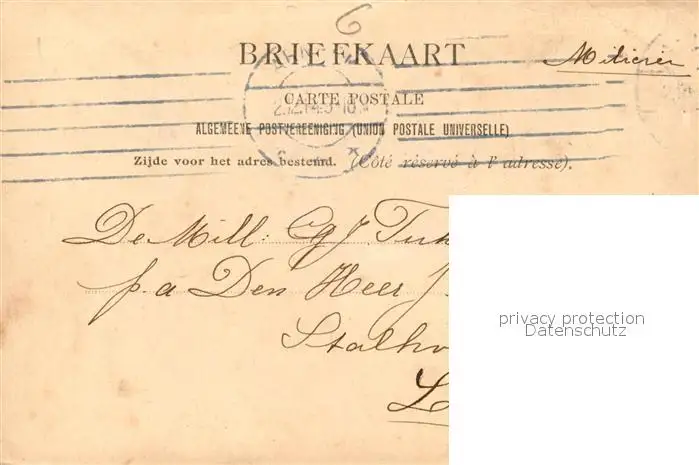 6
BRIEFKAART
Militair
CARTE POSTALE
ALGEMEENE POSTVEREENIGING (UNION POSTALE UNIVERSELLE)
Zijde voor het adres bestemd. (Côté réservé à l'adresse).
De Mill:
p.a Den Heer J.
Stalho
L
privacy protection
Datenschutz